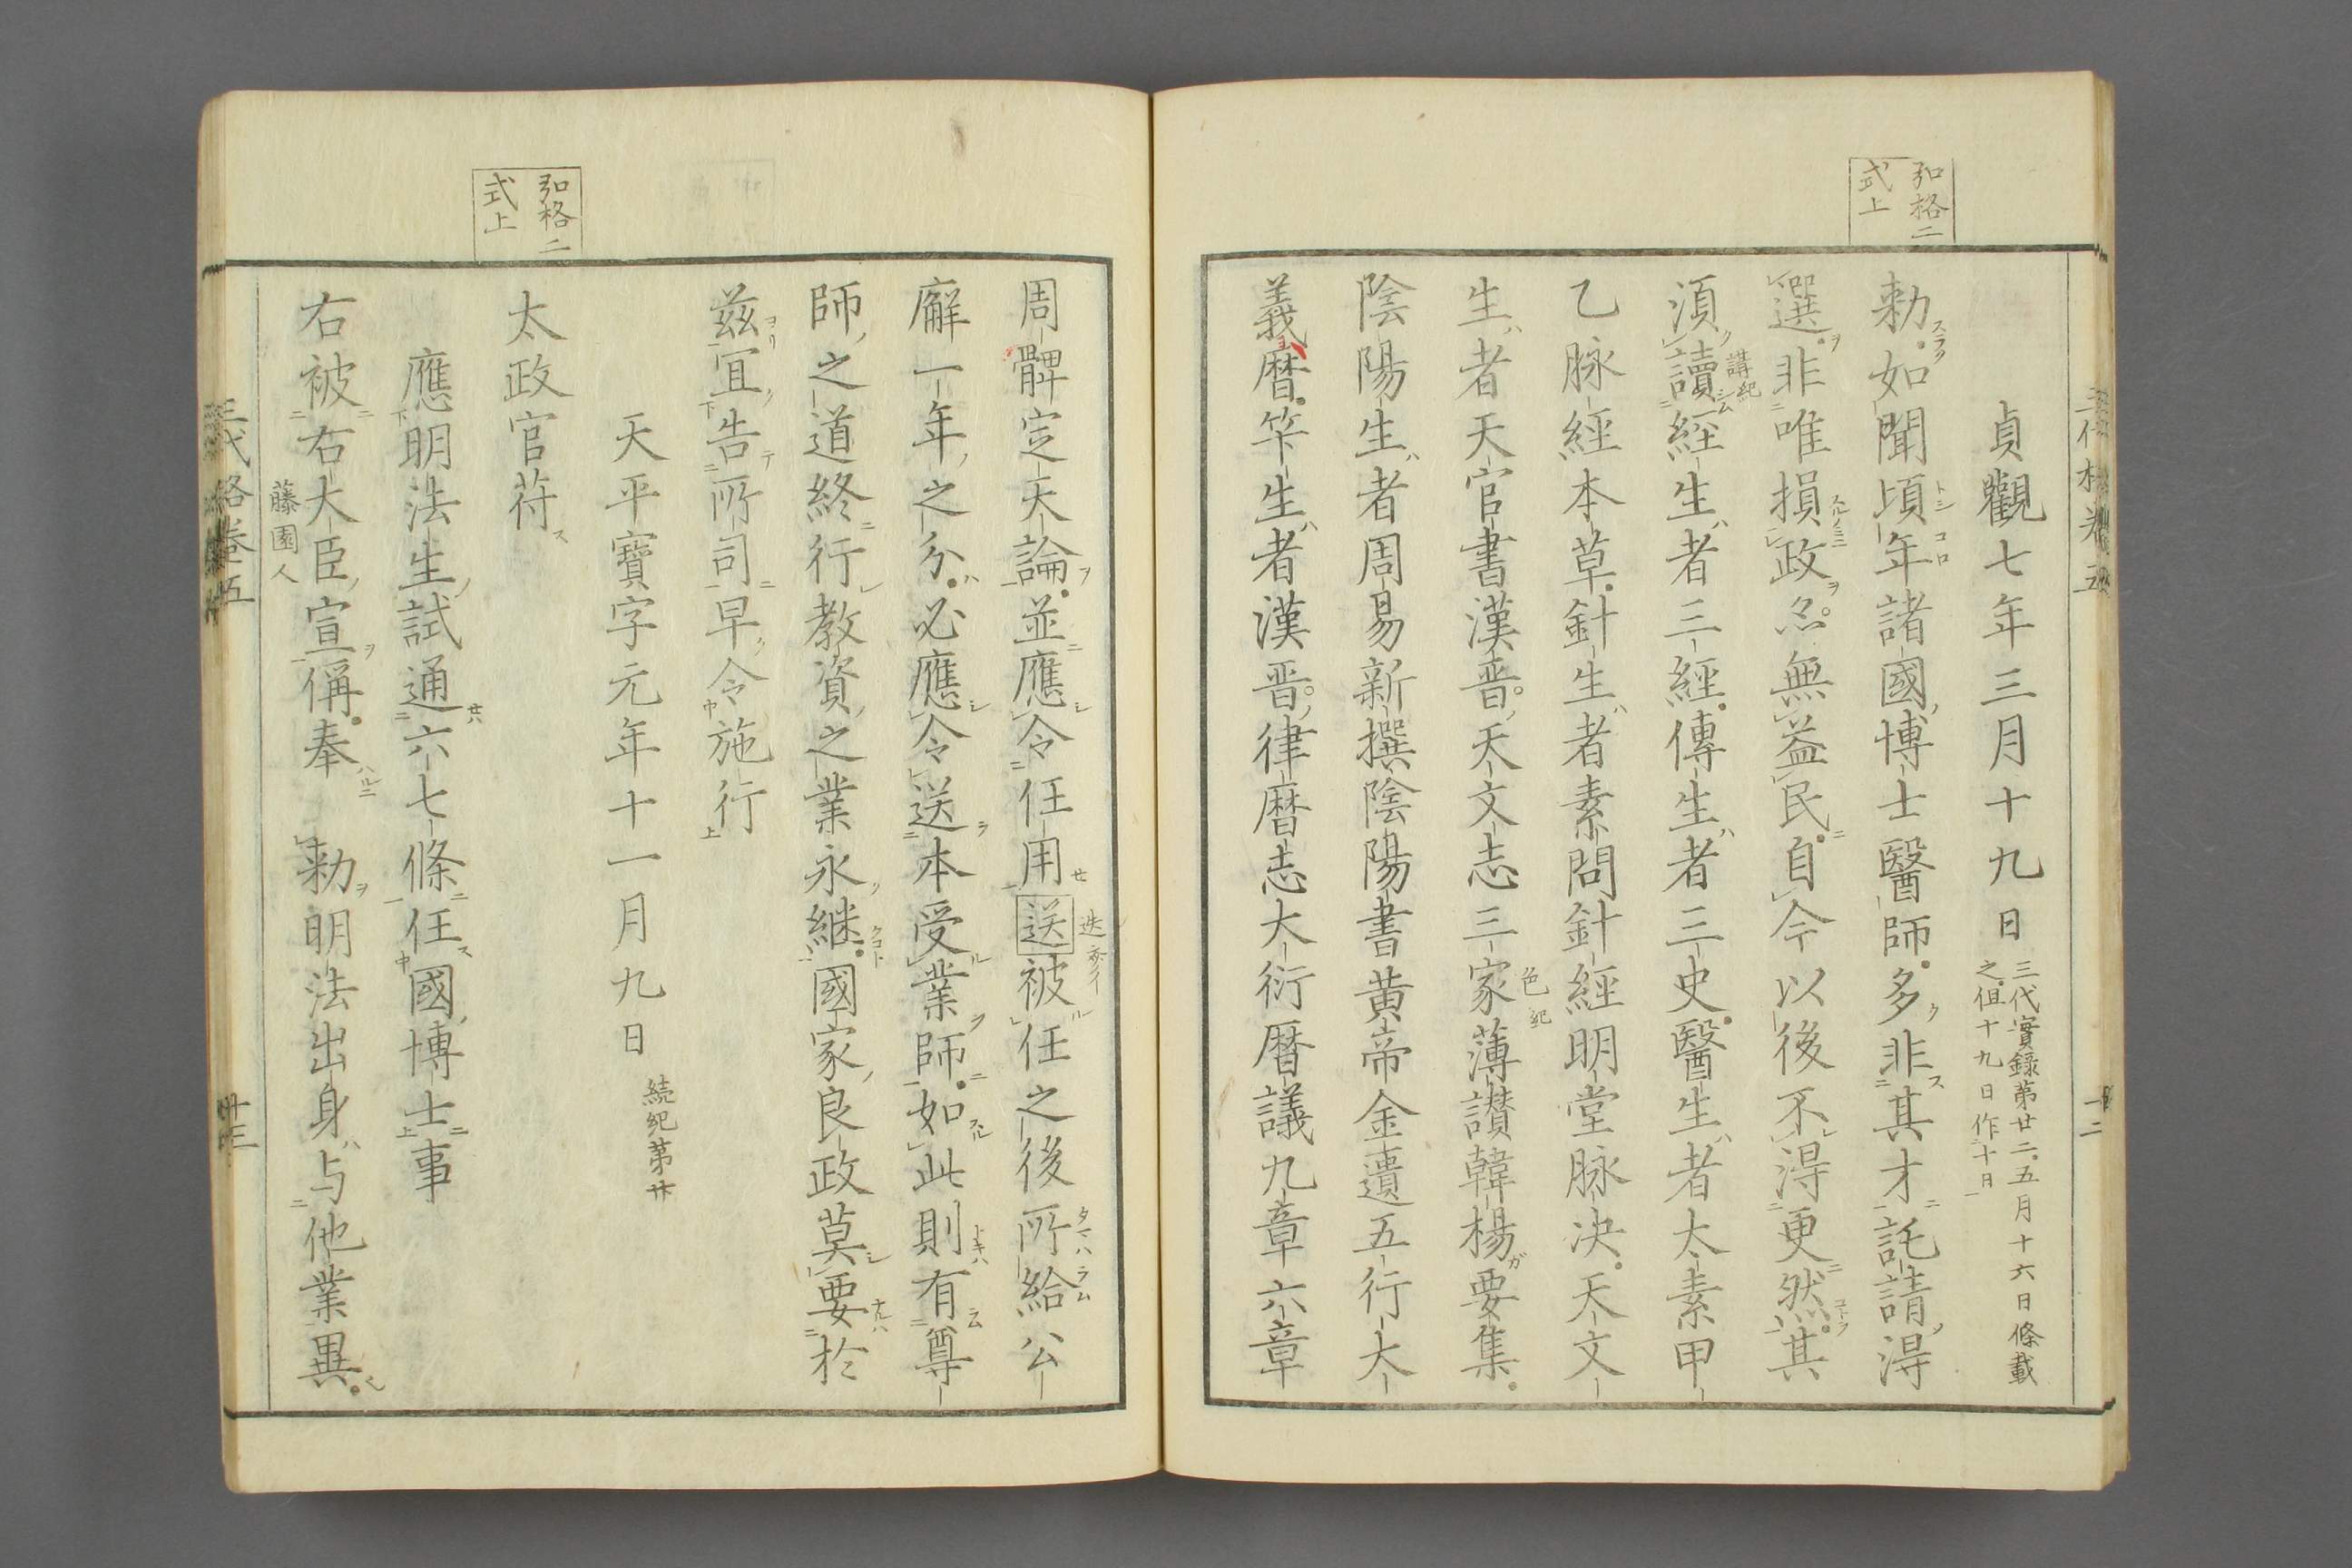 弘格二
式上
貞觀七年三月十九日
三代實録第廿二。五月十六日條載
之。但十九日作二十日一
勅。如聞頃年諸國博士醫師。多非其才託請得
選。非唯損政。亦無益民。自今以後不得更然。其
須讀經生者三經。傳生者三史。醫生者太素甲
講紀
乙脉經本草。針生者素問針經明堂脉决。天文
生者天官書漢晋。天文志三家薄讃韓楊要集。
色紀
陰陽生者周易新撰陰陽書黄帝金遺五行大
義。暦竿生者漢晋。律暦志大衍暦議九章六章
弘格二
式上
周髀定天論。並應令任用送被任之後所給公
迭叅イ
廨一年之分。必應令送本受業師。如此則有尊
師之道終行教資之業永継。國家良政莫要於
兹宜告所司早令施行
天平寶字元年十一月九日
続紀第廿
太政官苻
應明法生試通六七條任國博士事
右被右大臣宣偁。奉 勅明法出身与他業異。
藤園人
三代格巻五
十三